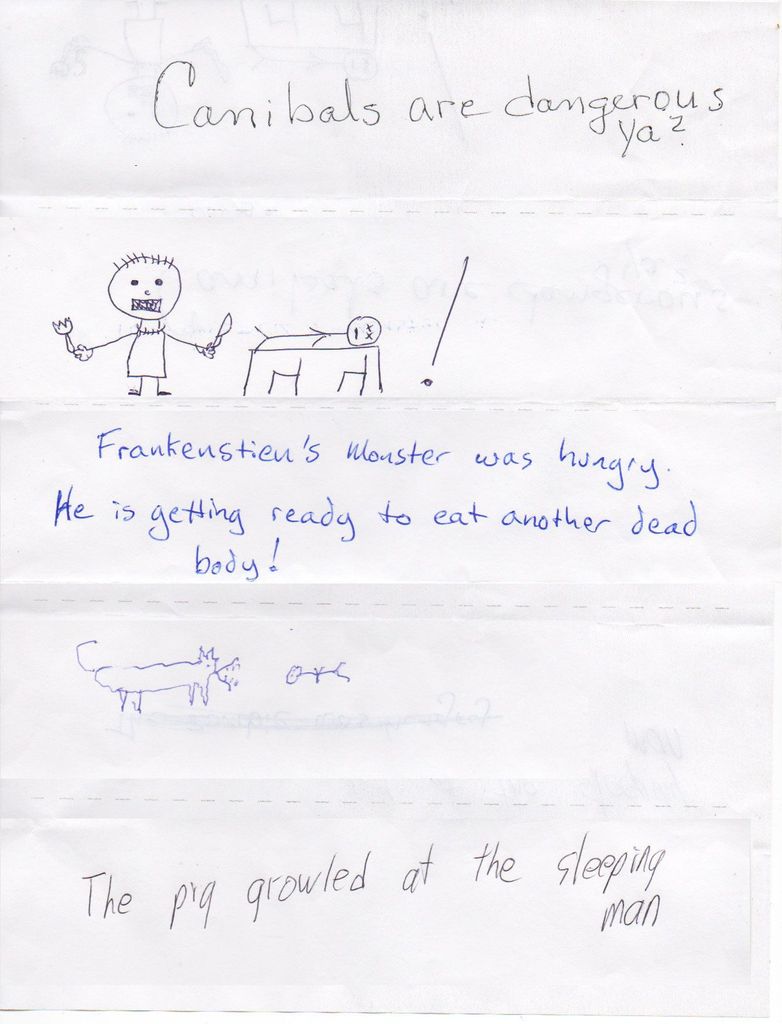 Canibals are dangerous
ya?
!
Frankenstien's Monster was hungry.
He is getting ready to eat another dead
body!
The pig growled at the sleeping
man